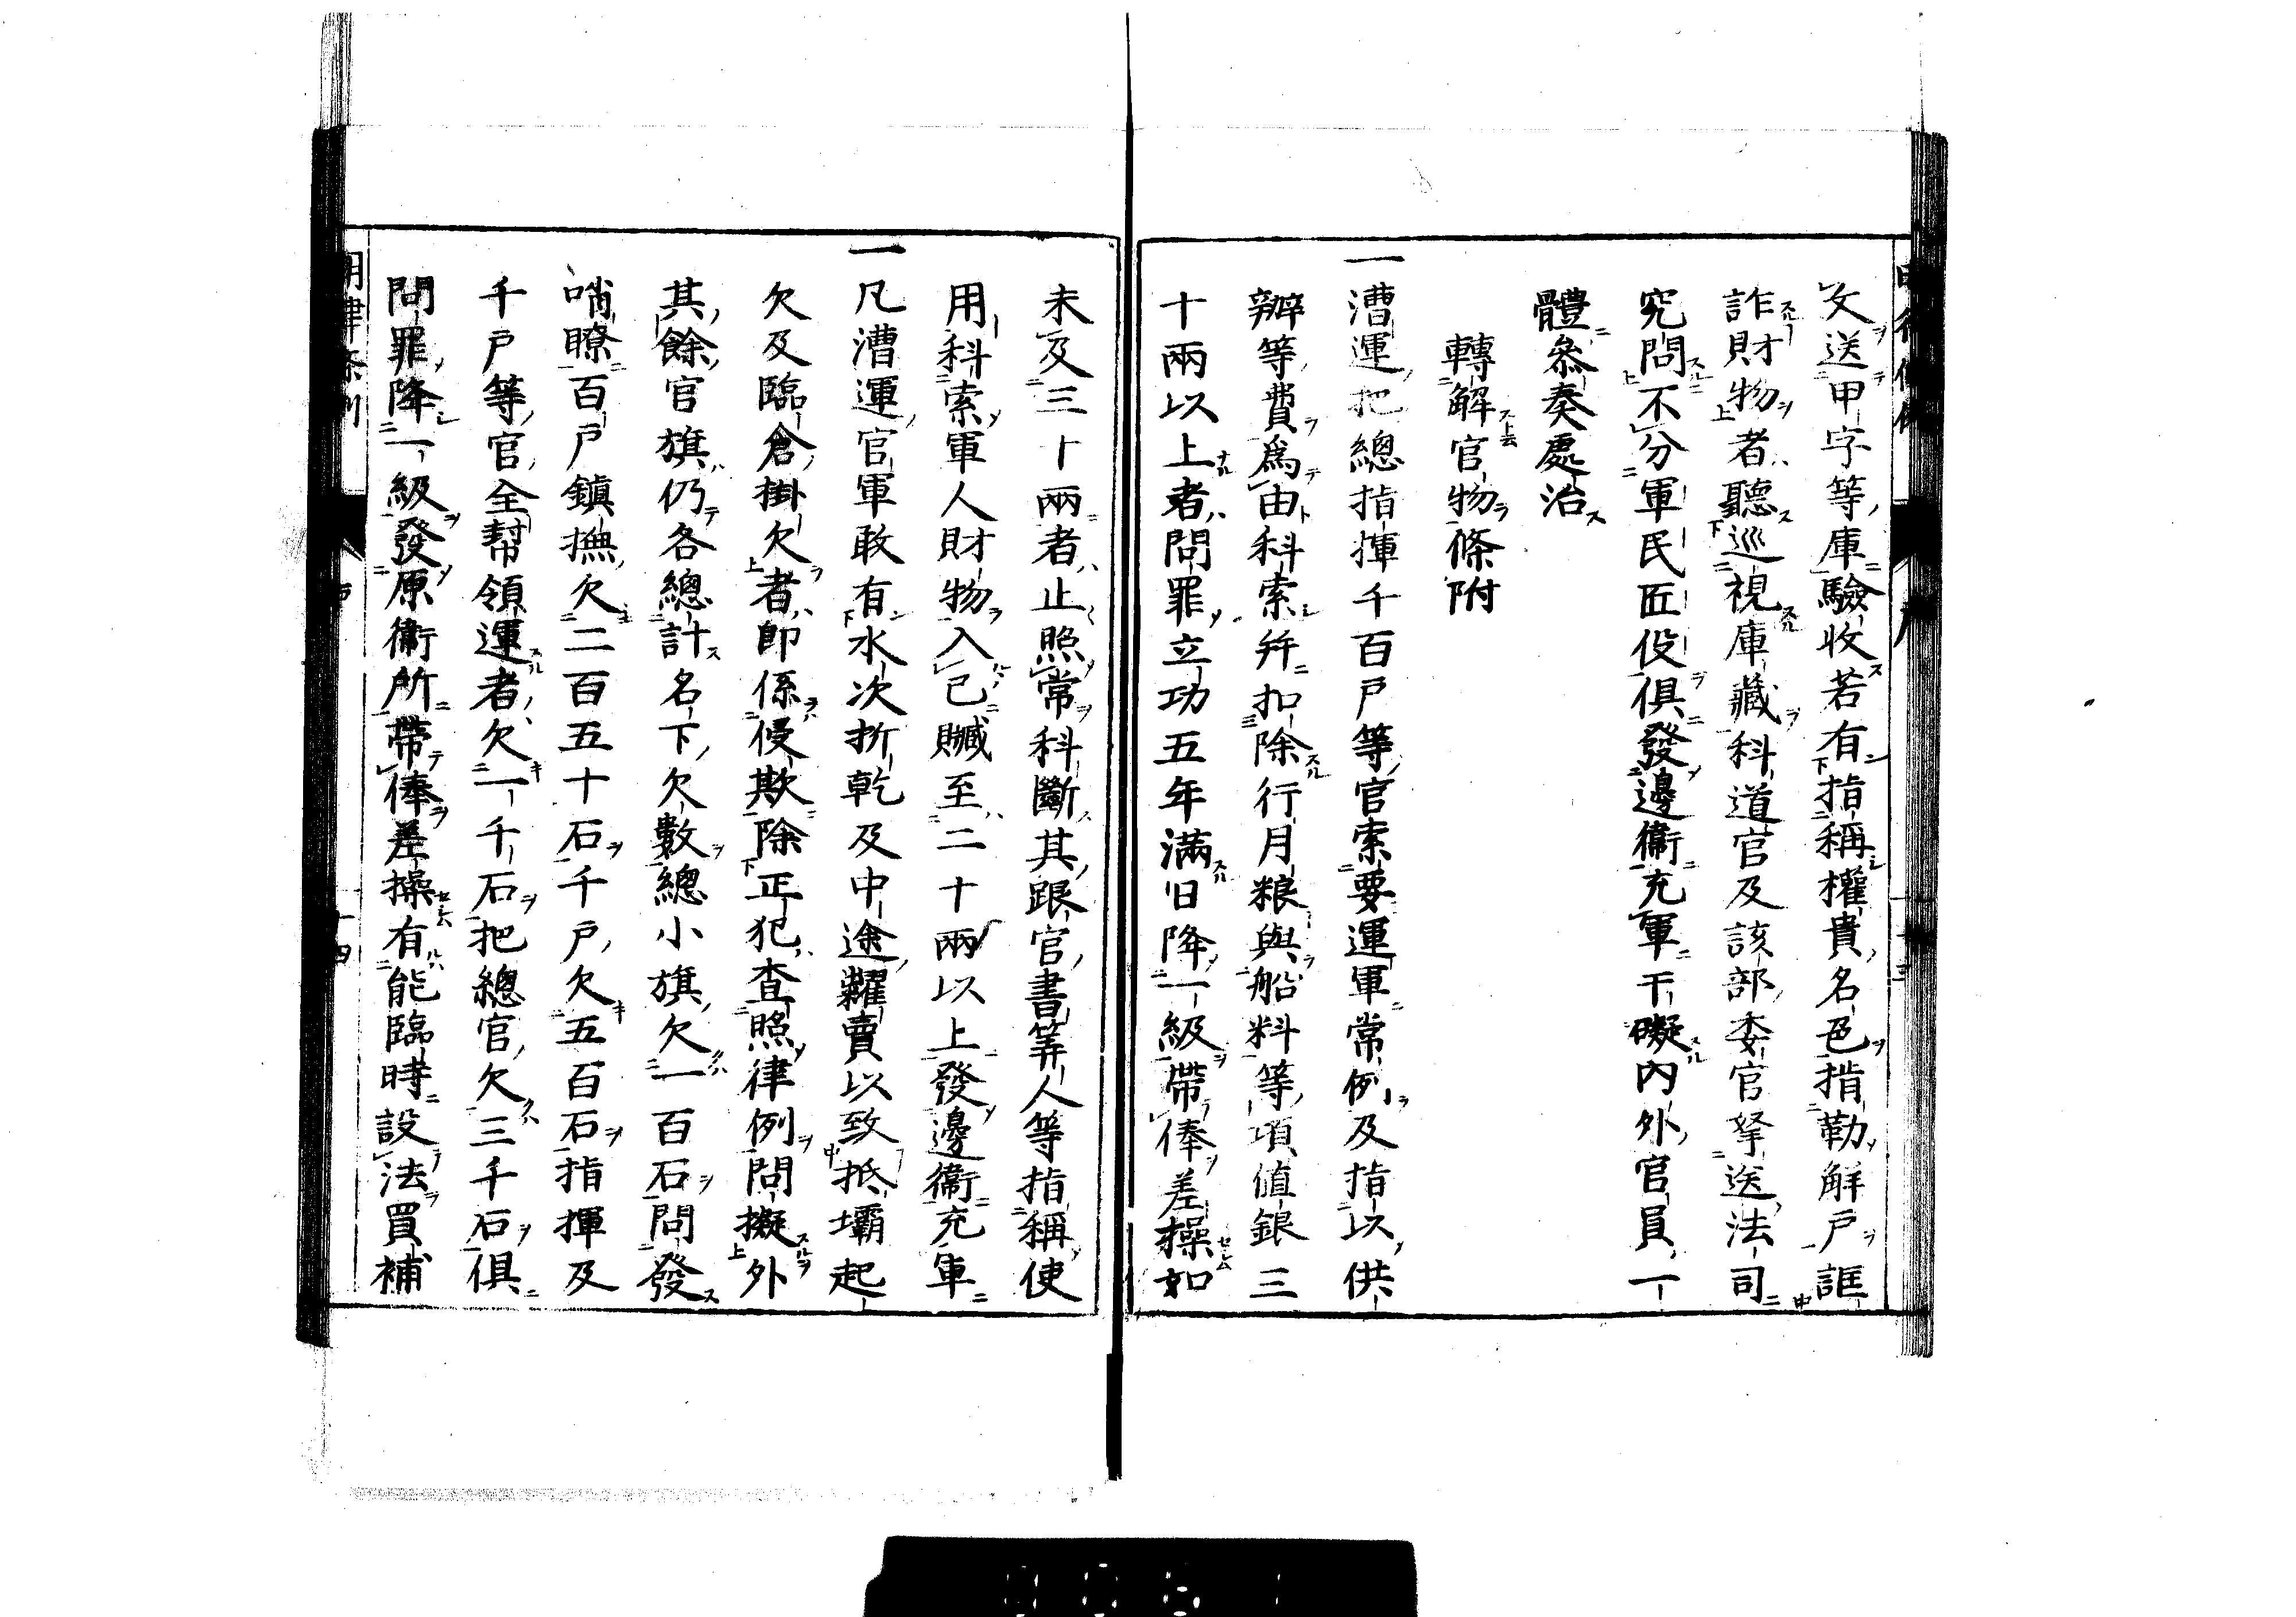 文送甲字等庫驗收若有指稱權貴名色揹勒解戶誆
詐財物者聽巡視庫藏科道官及該部委官拏送法司
究問不分軍民匠役俱發邊衞充軍干礙內外官員一
體叅奏處治
轉解官物條附
一漕運把總指揮千百戶等官索要運軍常例及指以供
辦等費爲由科索幷扣除行月粮與船料等項值銀三
十兩以上者問罪立功五年滿日降一級帶俸差操如
未及三十兩者止照常科斷其跟官書筭人等指稱使
用科索軍人財物入己贓至二十兩以上發邊衞充軍
一凡漕運官軍敢有水次折乾及中途糶賣以致抵壩起
欠及臨倉掛欠者卽係侵欺除正犯查照律例問擬外
其餘官旗仍各總計名下欠數總小旗欠一百石問發
哨瞭百戶鎮撫欠二百五十石千戶欠五百石指揮及
千戶等官全幫領運者欠一千石把總官欠三千石俱
問罪降一級發原衞所帶俸差操有能臨時設法買補